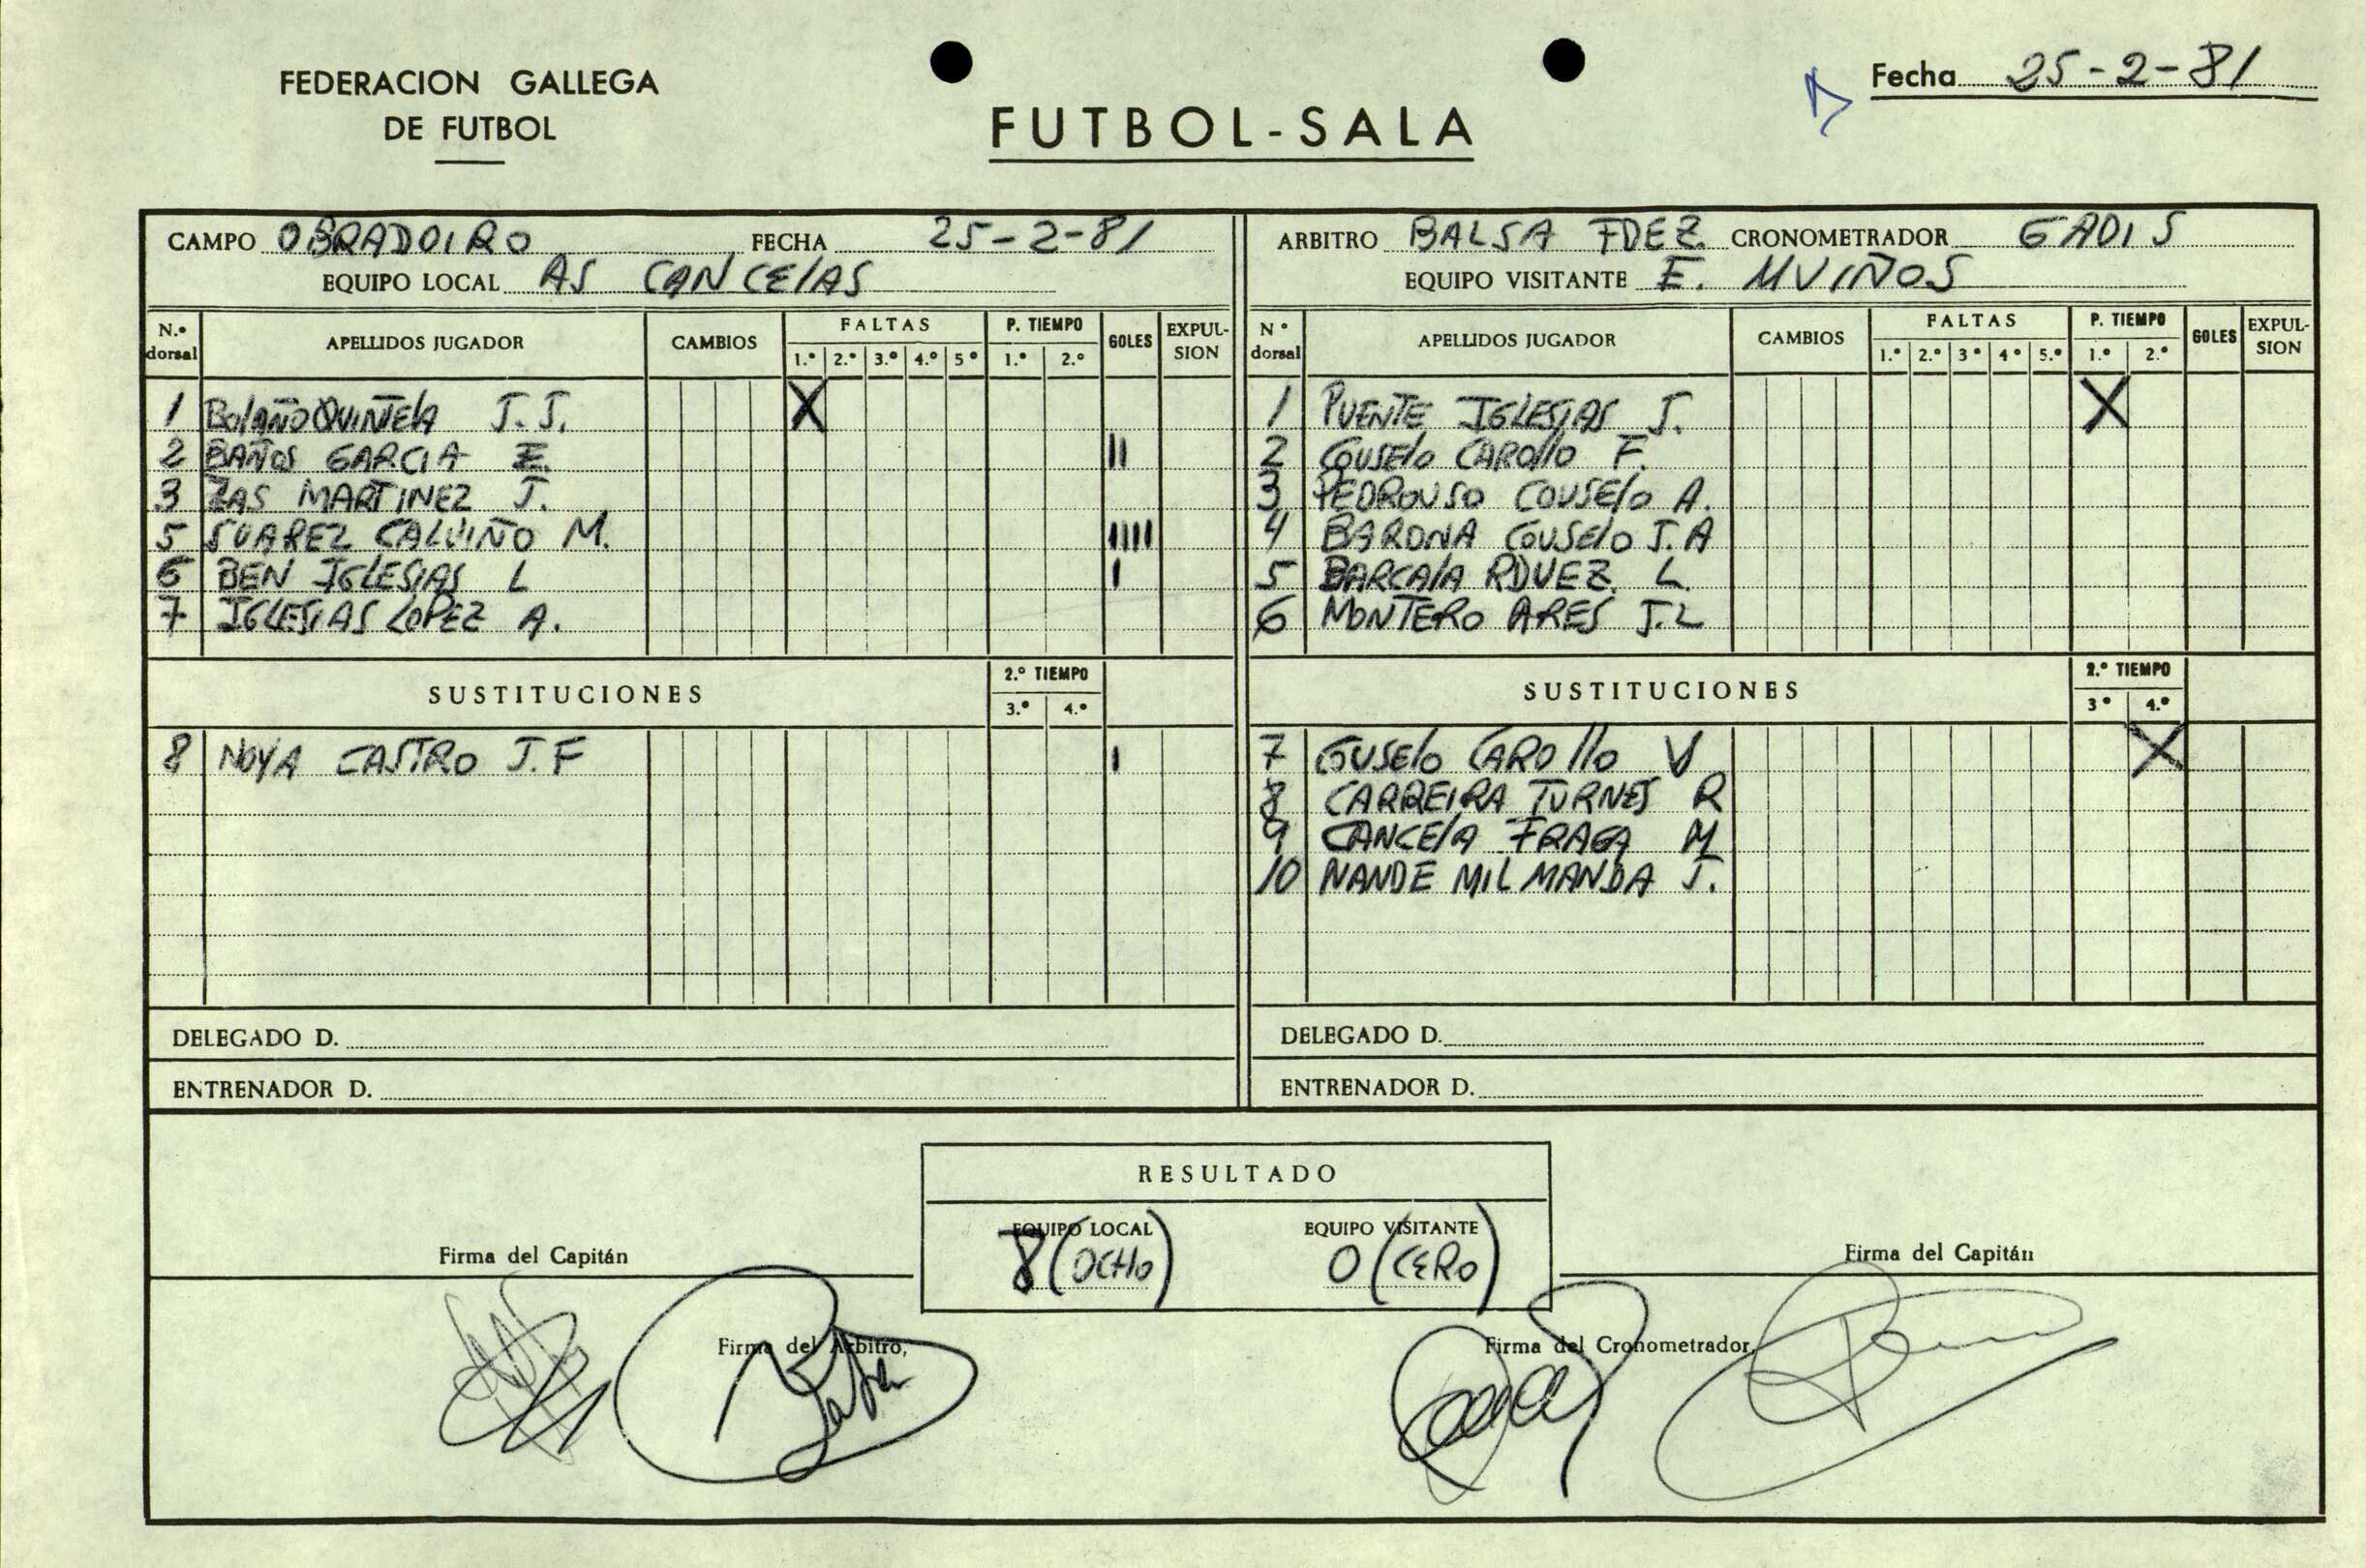 FEDERACION GALLEGA
DE FUTBOL
FUTBOL-SALA
Fecha 25-2-81
CAMPO OBRADOIRO FECHA 25-2-81
EQUIPO LOCAL AS CANCElAS
ARBITRO BALSA FDEZ. CRONOMETRADOR GADIS
EQUIPO VISITANTE E. MUIÑOS
N.º dorsal APELLIDOS JUGADOR CAMBIOS FALTAS 1.º 2.º 3.º 4.º 5º P. TIEMPO 1.º 2.º GOLES EXPUL-SION
1 BolAÑO QUINTElA J.J. X
2 BAÑOS GARCIA E. II
3 ZAS MARTINEZ J.
5 SUAREZ CALVIÑO M. IIIII
6 BEN IGLESIAS L I
7 IGLESIAS LOPEZ A.
SUSTITUCIONES 2.º TIEMPO 3.º 4.º
8 NOYA CASTRO J.F I
DELEGADO D.
ENTRENADOR D.
N º dorsal APELLIDOS JUGADOR CAMBIOS FALTAS 1.º 2.º 3º 4º 5.º P. TIEMPO 1.º 2.º GOLES EXPUL-SION
1 PUENTE IGLESIAS J. X
2 COUSElo CAROllo F.
3 PEDROUSO COUSElo A.
4 BARONA COUSElo J.A
5 BARCAlA RDUEZ. L
6 MONTERO ARES J.L
SUSTITUCIONES 2.º TIEMPO 3º 4.º
7 COUSElo CAROllo V X
8 CARREIRA TURNES R
9 CANCElA FRAGA M
10 NANDE MILMANDA J.
DELEGADO D.
ENTRENADOR D.
RESULTADO
EQUIPO LOCAL EQUIPO VISITANTE
8 (OCHO) 0 (CERO)
Firma del Capitán
Firma del Capitán
Firma del Arbitro,
Firma del Cronometrador,